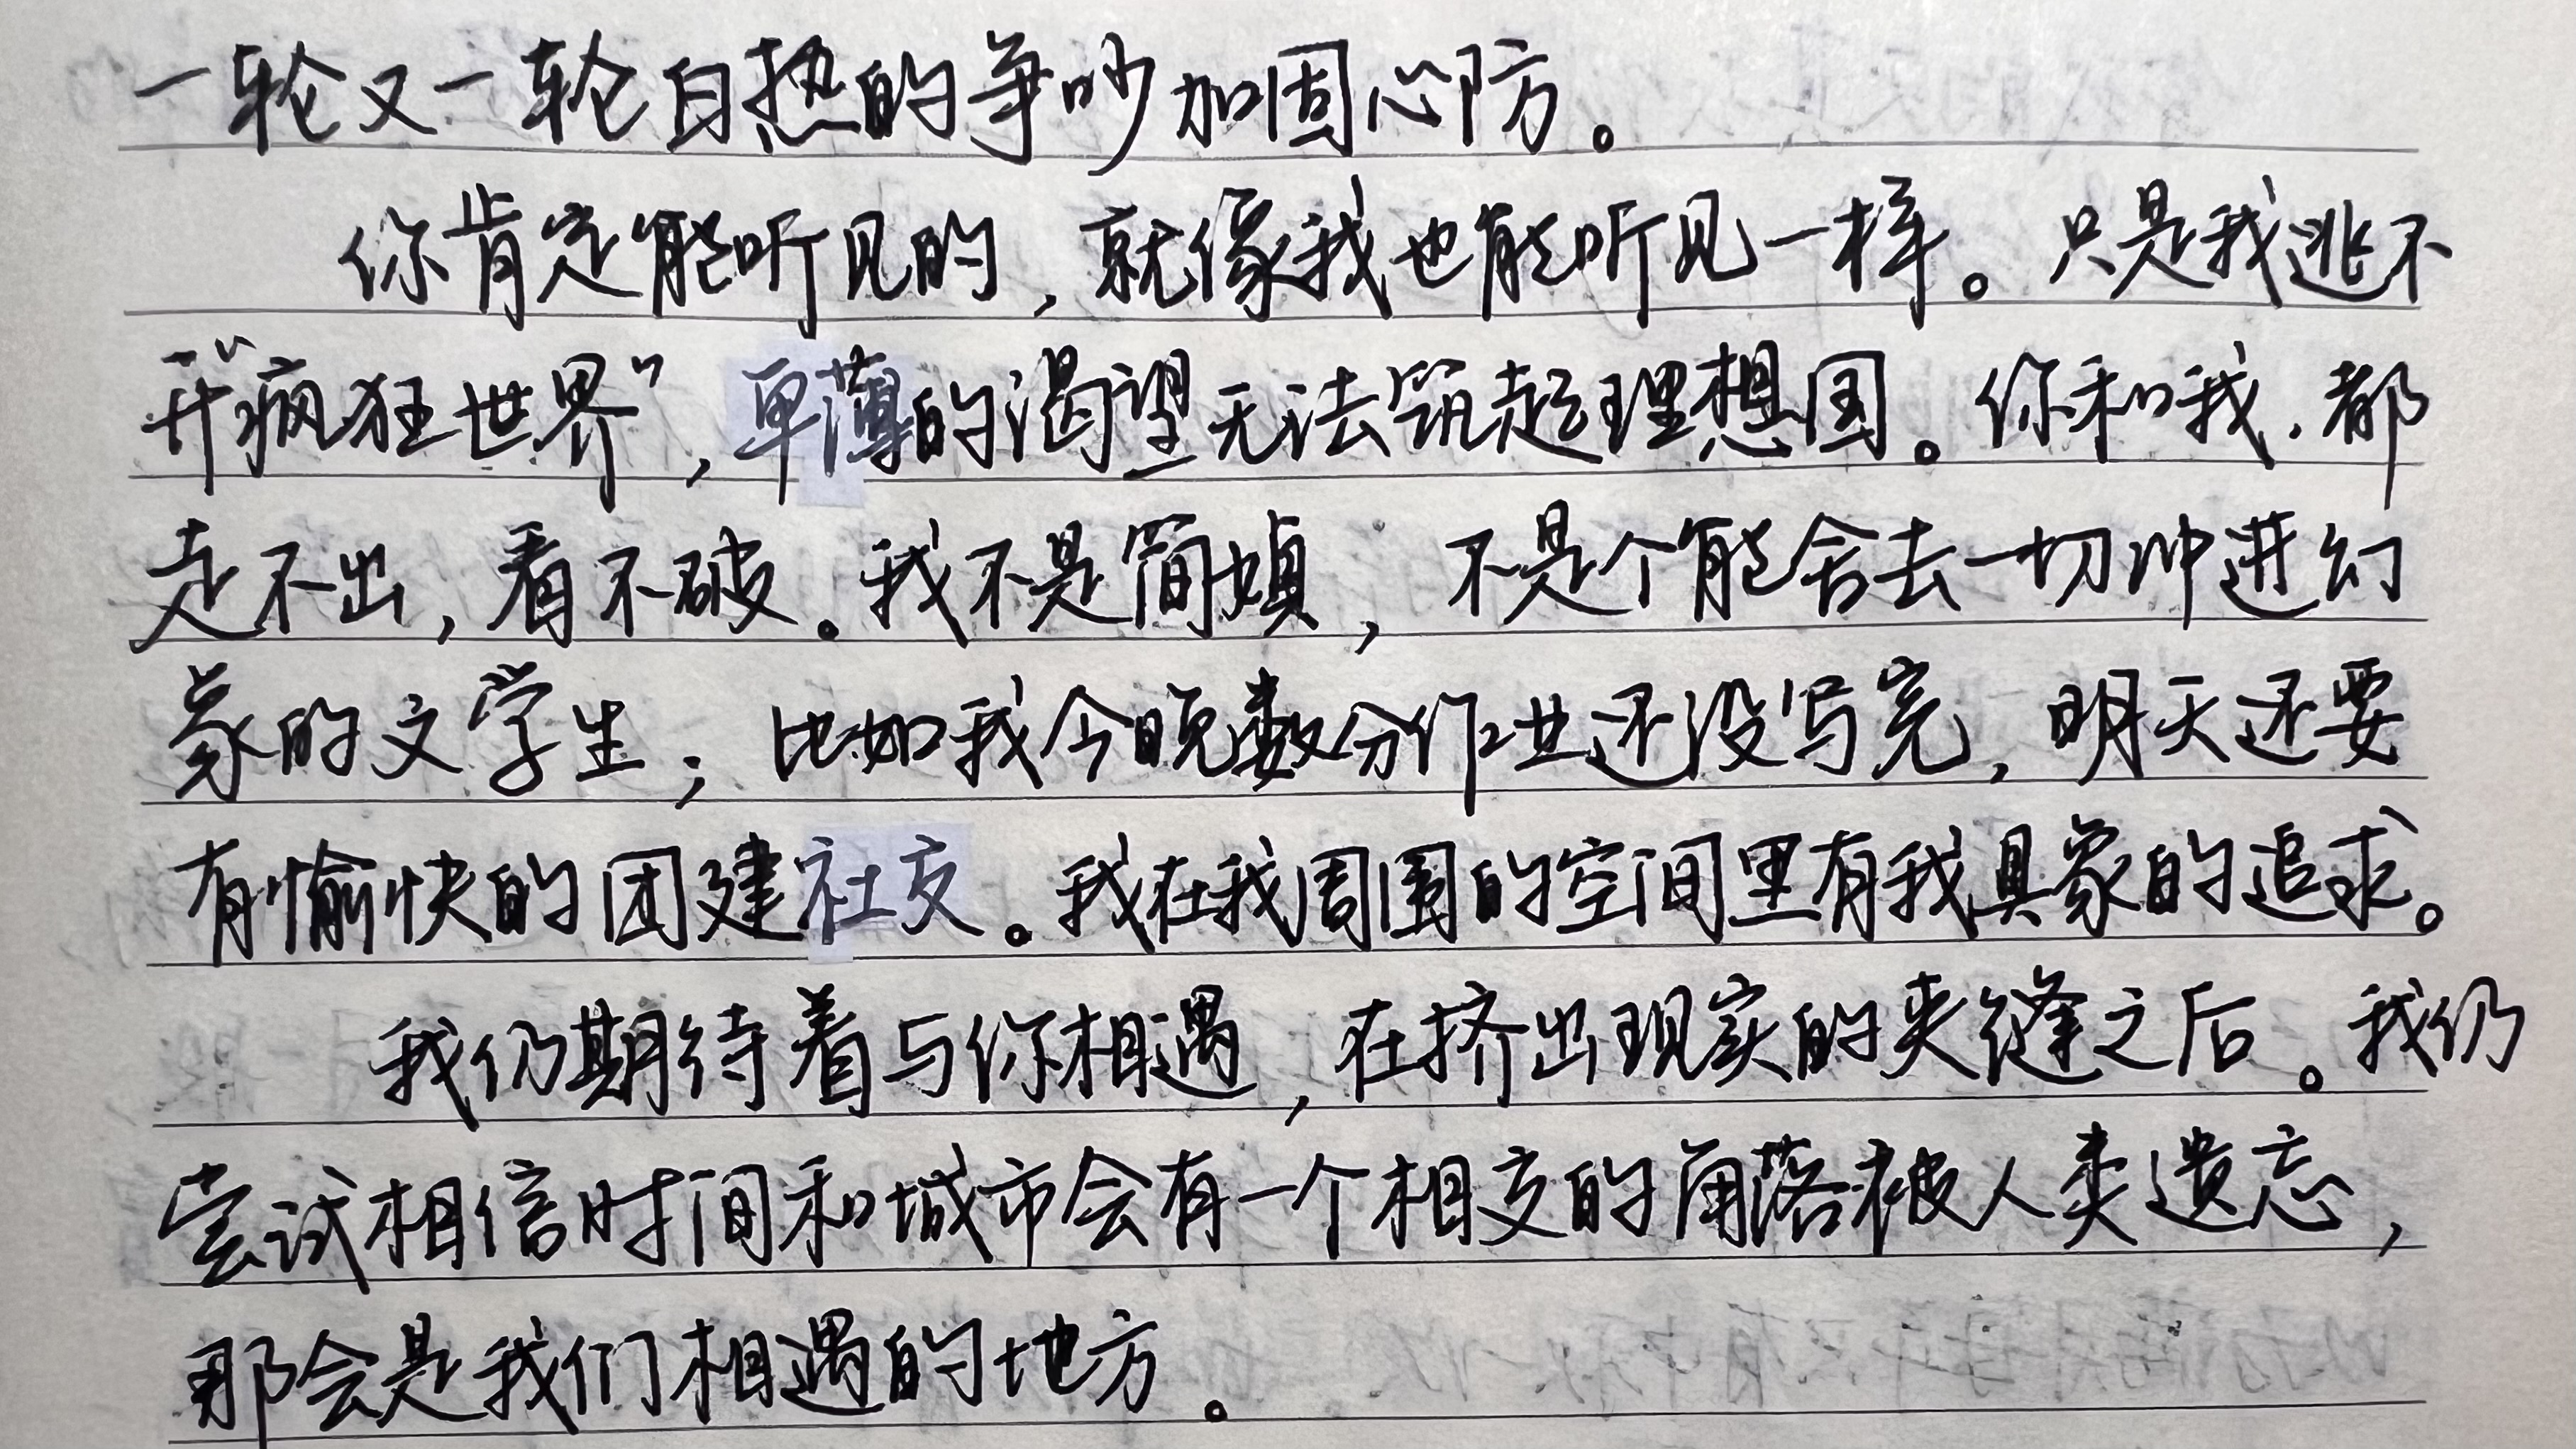 一轮又一轮白热的争吵加固心防。
你肯定能听见的，就像我也能听见一样。只是我逃不
开“疯狂世界”，单薄的渴望无法筑起理想国。你和我，都
走不出，看不破。我不是简嫃，不是个能舍去一切冲进幻
象的文学生；比如我今晚数分作业还没写完，明天还要
有愉快的团建社交。我在我周围的空间里有我具象的追求。
我仍期待着与你相遇，在挤出现实的夹缝之后。我仍
尝试相信时间和城市会有一个相交的角落被人类遗忘，
那会是我们相遇的地方。